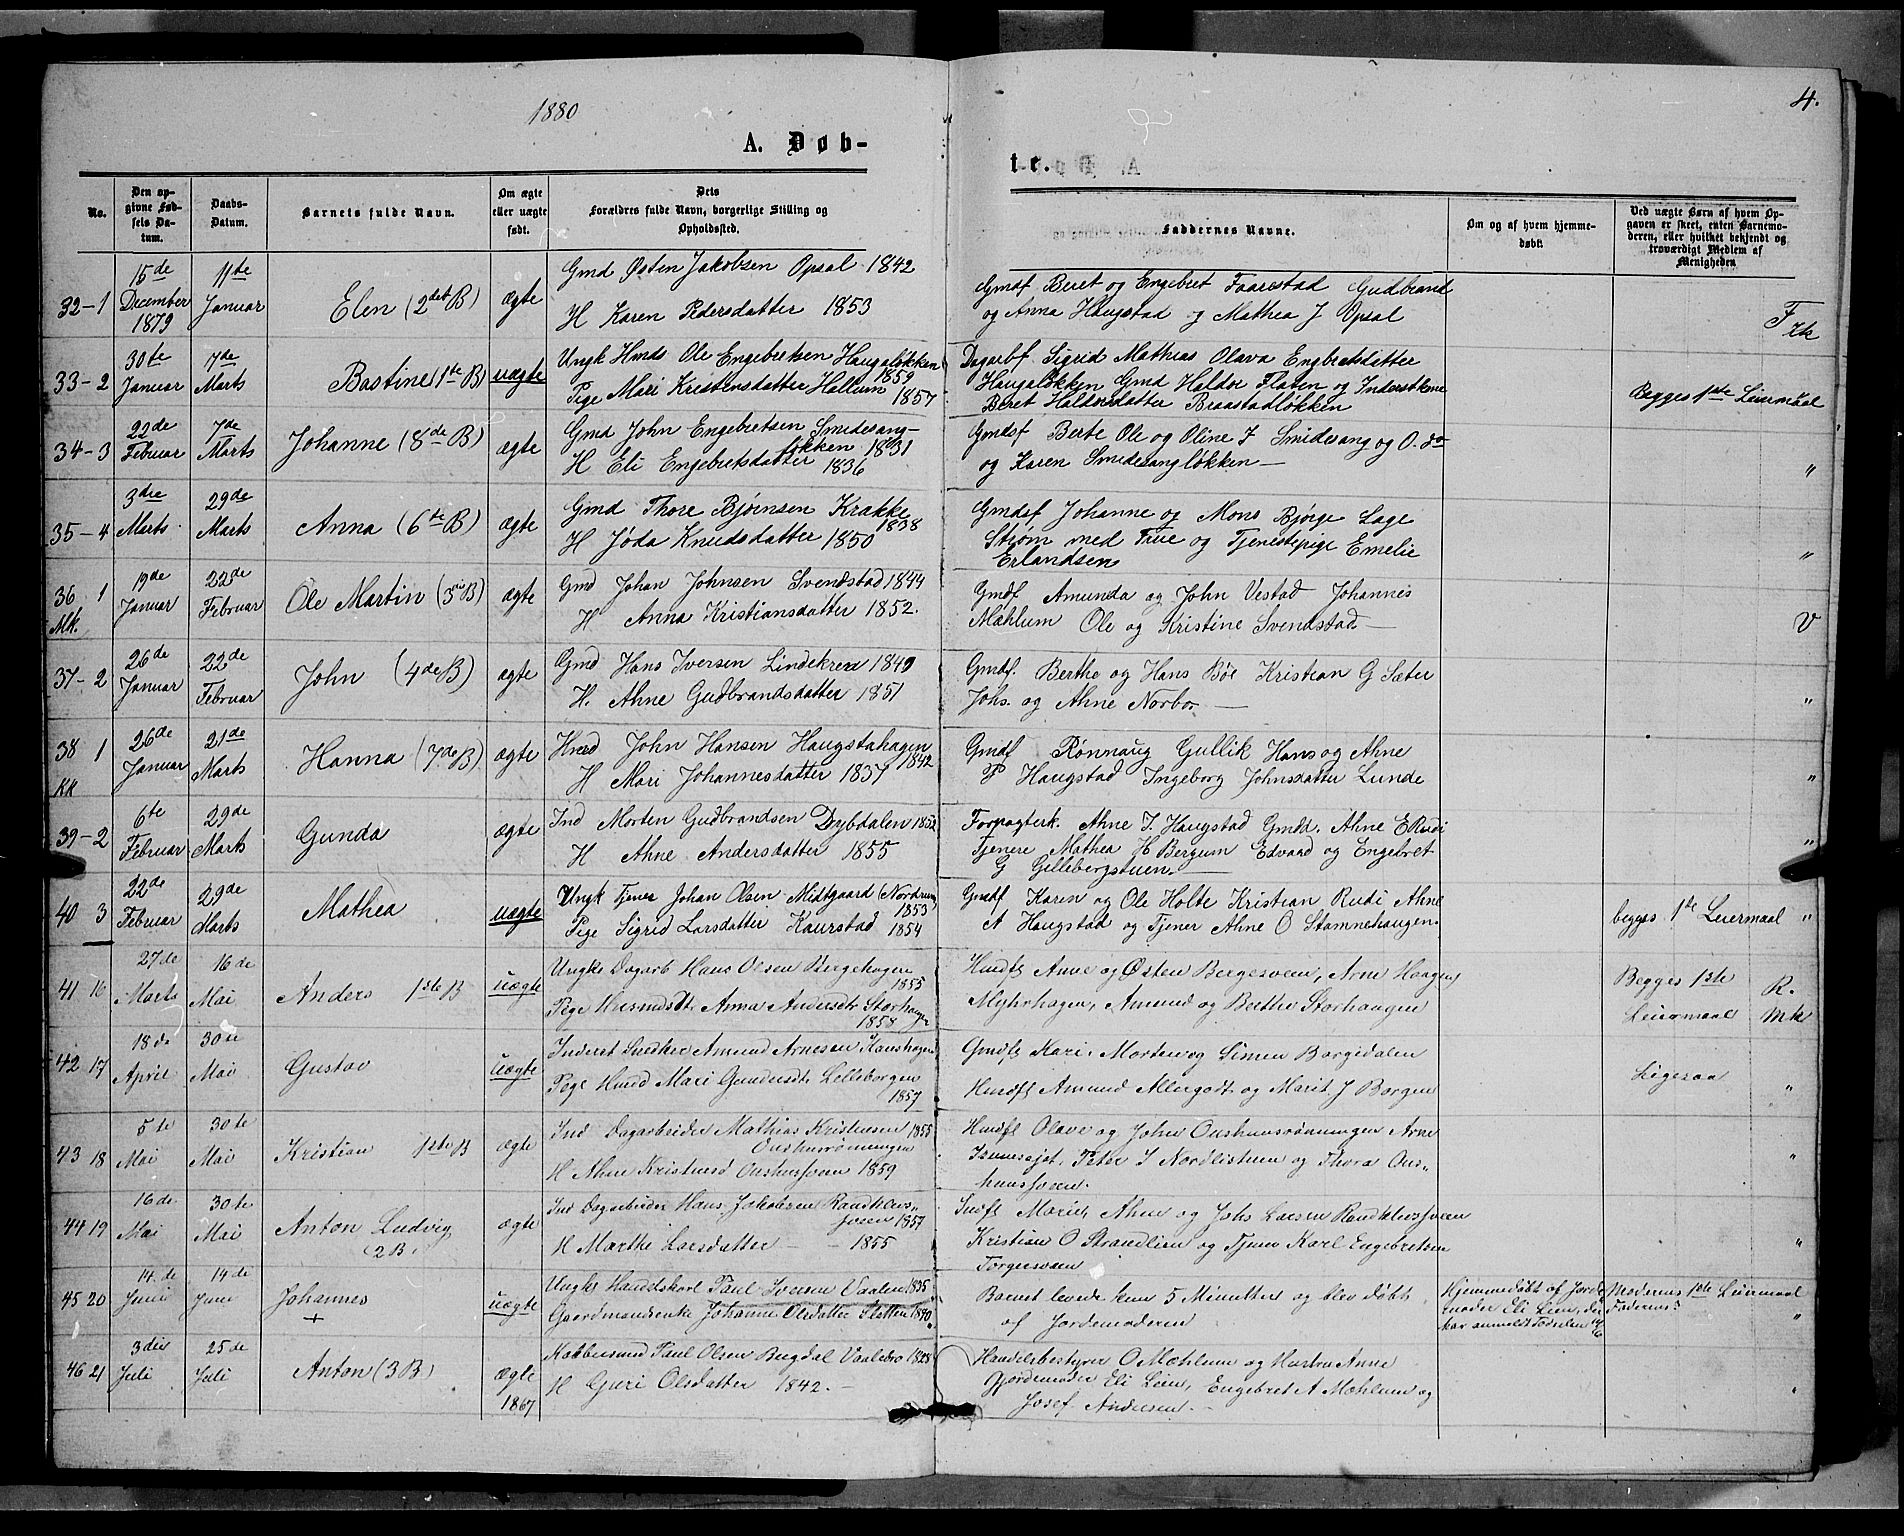 1880
4.
A. Døb-
te.
No.
Den op-
givne Fød-
sels Da-
tum.
Daabs-
Datum.
Barnets fulde Navn.
Om ægte
eller uægte
født.
Dets
Forældres fulde Navn, borgerlige Stilling og
Opholdssted.
Faddernes Navne.
Om og af hvem hjemme-
døbt.
Ved uægte Børn af hvem Op-
gaven er skeet, enten Barnemo-
deren, eller hvilket bekjendt og
troværdigt Medlem af
Menigheden
32-1
15de
December
1879
11te
Januar
Elen (2det B)
ægte
Gmd Østen Jakobsen Opsal 1842
H Karen Pedersdatter 1853
Gmdf Beret og Engebret Faarstad Gudbrand
og Anna Haugstad og Mathea J Opsal
F
33-2
30te
Januar
7de
Marts
Bastine (1ste B)
uægte
Ungk Hmds Ole Engebretsen Haugaløkken
1859
Pige Mari Kristensdatter Hallum 1857
Dagarbf. Sigrid Mathias Olava Engbretsdatter
Haugaløkken Gmd Haldor Flaten og Inderstkone
Beret Haldorsdatter Braastadløkken
Begges 1ste Leiermaal
34-3
22de
Februar
7de
Marts
Johanne (8de B)
ægte
Gmd John Engebretsen Smidesang-
løkken 1831
H Eli Engebretsdatter 1836
Gmdsf Berte Ole og Oline J Smidesang og O. do
og Karen Smidesangløkken —
"
35-4
3die
Marts
29de
Marts
Anna (6te B)
ægte
Gmd Thore Bjørnsen Krakke
1838
H Jøda Knudsdatter 1850
Gmdsf Johanne og Mons Bjørge Lage
Strøm med Frue og Tjenestepige Emelie
Erlandsen
"
36 1
Mk.
19de
Januar
22de
Februar
Ole Martin (3die B)
ægte
Gmd Johan Johnsen Svendstad 1844
H Anna Kristiansdatter 1852.
Gmdf Amunda og John Vestad Johannes
Mæhlum Ole og Kristine Svendstad —
V
37-2
26de
Januar
22de
Februar
John (4de B)
ægte
Gmd Hans Iversen Lindekren 1849
H. Ahne Gudbrandsdatter 1851
Gmdf. Berthe og Hans Bøe Kristian G Sæter
Johs. og Ahne Norbo —
"
38 1
KK
26de
Januar
21de
Marts
Hanna (7de B)
ægte
Hmd John Hansen Haugstahagen
1842
H Mari Johannesdatter 1837
Gmdf Rønnaug Gullik Hans og Ahne
P Haugstad Ingeborg Johnsdatter Lunde
"
39-2
6te
Februar
29de
Marts
Gunda
ægte
Ind Morten Gudbrandsen Dybdalen 1852
H Ahne Andersdatter 1855
Forpagterk. Ahne J. Haugstad Gmd. Ahne E Rudi
Tjenere Mathea H Bergum Edvard og Engebret
G Gillebergstuen. —
"
40 3
22de
Februar
29de
Marts
Mathea
uægte
Ungk Tjener Johan Olsen Midtgaard (Nordrum)
1853
Pige Sigrid Larsdatter Kaurstad 1854
Gmdf Karen og Ole Holte Kristian Rudi Ahne
A Haugstad og Tjener Ahne O Stamnehaugen.
begges 1ste Leiermaal "
41 16
27de
Marts
16de
Mai
Anders 1ste B
uægte
Ungke Dagarb Hans Olsen Bergehagen
1855
Pige Husmdsdt. Anna Andersdtr Storhagen
1858
Husfk Anne og Østen Bergesveen, Arne Haagens
Myhrhagen, Amund og Berthe Storhaugen
Begges 1ste
Leiermaal
R.
Mk
42 17
18de
April
30te
Mai
Gustav
uægte
Inderst Snedker Amund Arnesen Hanshagen
Pige Husmd Mari Gundersdt Lilleborgen
1857
Gmdfk Kari, Morten og Simen Borgedalen
Husdfk Amund Allergodt og Marit J Borgen
Ligesaa
"
43 18
5te
Mai
30te
Mai
Kristian 1ste B
ægte
Ind Dagarbeider Mathias Kristensen 1855
H Ahne Kristensd 1859
Husdfk Olave og John Arne
Peter J Nordlistuen og Thora
"
44 19
16de
Mai
30te
Mai
Anton Ludvig
(2 B.)
ægte
Ind Dagarbeider Hans Jakobsen
1857
H Marthe Larsdatter — 1855
Indfk Marie, Ahne og Johs Larsen
Kristian O Strandlien og Tjener Karl Engebretsen
Torgersveen
"
45 20
14de
Juni
14de
Juni
Johannes
+
uægte
Ungke Handelskarl Paul Iversen Vaalen 1835
Gaardmandsenke Johanne Olsdatter Sletten 1840
Barnet levede kun 5 Minutter og blev døbt
af Jordemoderen
Hjemmedøbt af Jorde
moder Eli Lien, der
har anmeldt Fødselen 14/6
Moderens 1ste Leiermaal
Faderens?
"
46 21
3die
Juli
25de
Juli
Anton (3 B)
ægte
1867
Paul Olsen Bugdal Vaalebro 1828
H Guri Olsdatter 1842. —
Handelsbestyrer O Mæhlum og Hustru Anne
Gjordemoder Eli Lien, Engebret A Mæhlum og
Josef Andersen. —
"